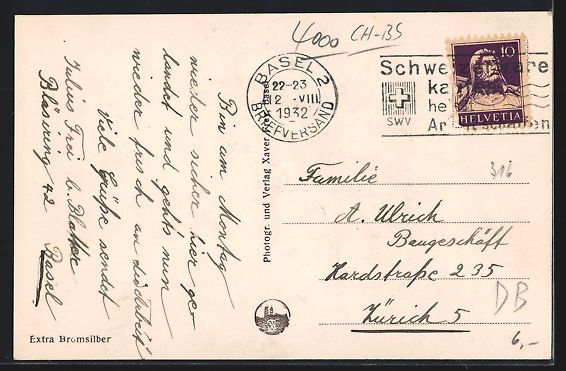 4000 CH-BS
BASEL 2
22-23
2. VIII
1932
BRIEFVERSAND
Schweizerware
ka
he
Ar schaffen
SWV
10
HELVETIA
316
Familie
A. Ulrich
Baugeschäft
Hardstraße 235
Zürich 5
DB
6,-
Bin am Montag
wieder sicher hier ge-
landet und gehts nun
wieder frisch an die Arbeit
Viele Grüße sendet
Julius Frei b.
Bläsiring 42 Basel
Photogr. und Verlag Xaver
Extra Bromsilber